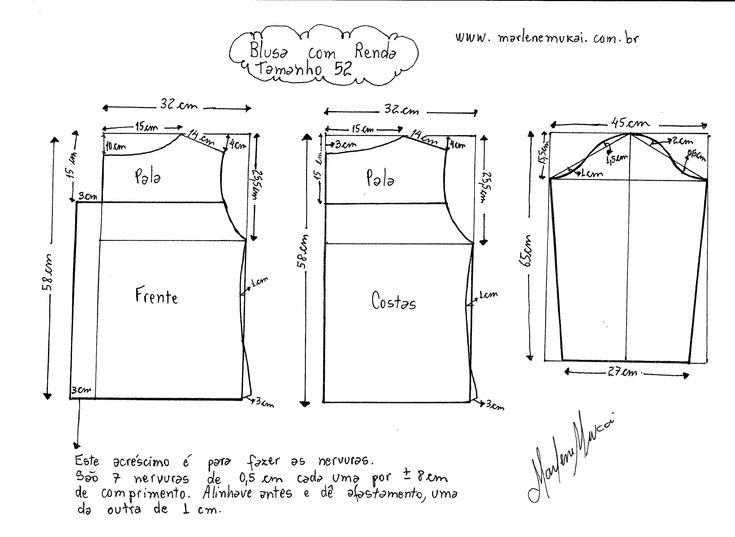 Blusa com Renda
Tamanho 52
www.marlenemukai.com.br
32cm
15cm
14cm
4cm
10cm
15cm
Pala
23,5cm
3cm
58cm
Frente
1cm
3cm
3cm
32cm
15cm
14cm
4cm
3cm
Pala
23,5cm
58cm
Costas
1cm
3cm
45cm
15,5cm
2cm
1,5cm
0,5cm
1cm
65cm
27cm
Este acréscimo é para fazer as nervuras.
São 7 nervuras de 0,5 cm cada uma por ± 8cm
de comprimento. Alinhave antes e dê afastamento, uma
da outra de 1 cm.
Marlene Mukai